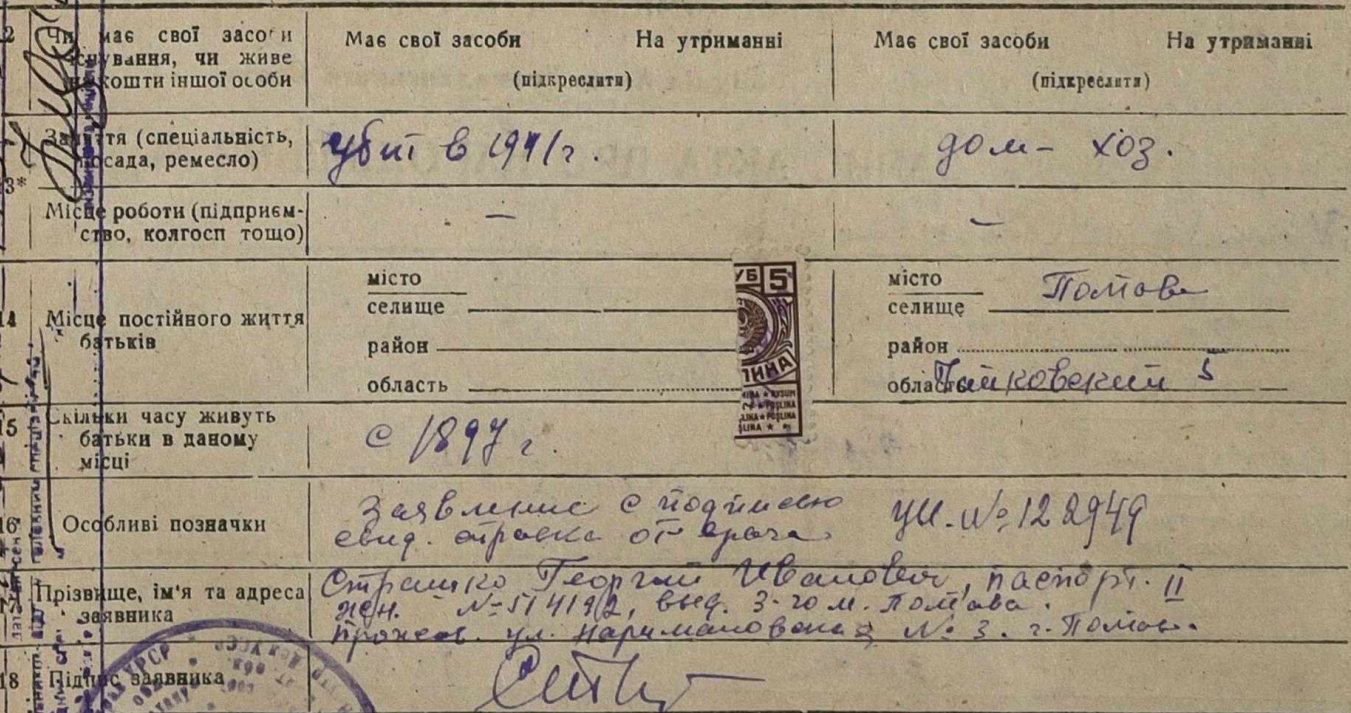 12 Чи має свої засоби
існування, чи живе
на кошти іншої особи
Має свої засоби На утриманні
(підкреслити)
Має свої засоби На утриманні
(підкреслити)
13* Заняття (спеціальність,
посада, ремесло)
убит в 1941 г.
дом- хоз.
Місце роботи (підприєм-
ство, колгосп тощо)
—
—
14 Місце постійного життя
батьків
місто
селище
район
область
УБ 5
місто
селище
район
область
15 Скільки часу живуть
батьки в даному
місці
с 1897 г.
16 Особливі позначки
Заявление с подписью
свид. от врача
№ 122949
17 Прізвище, ім'я та адреса
заявника
Георгий Иванович, паспорт. II
№ 514192, выд. 3-го м.
ул. Наримановская № 3. г.
18 Підпис заявника